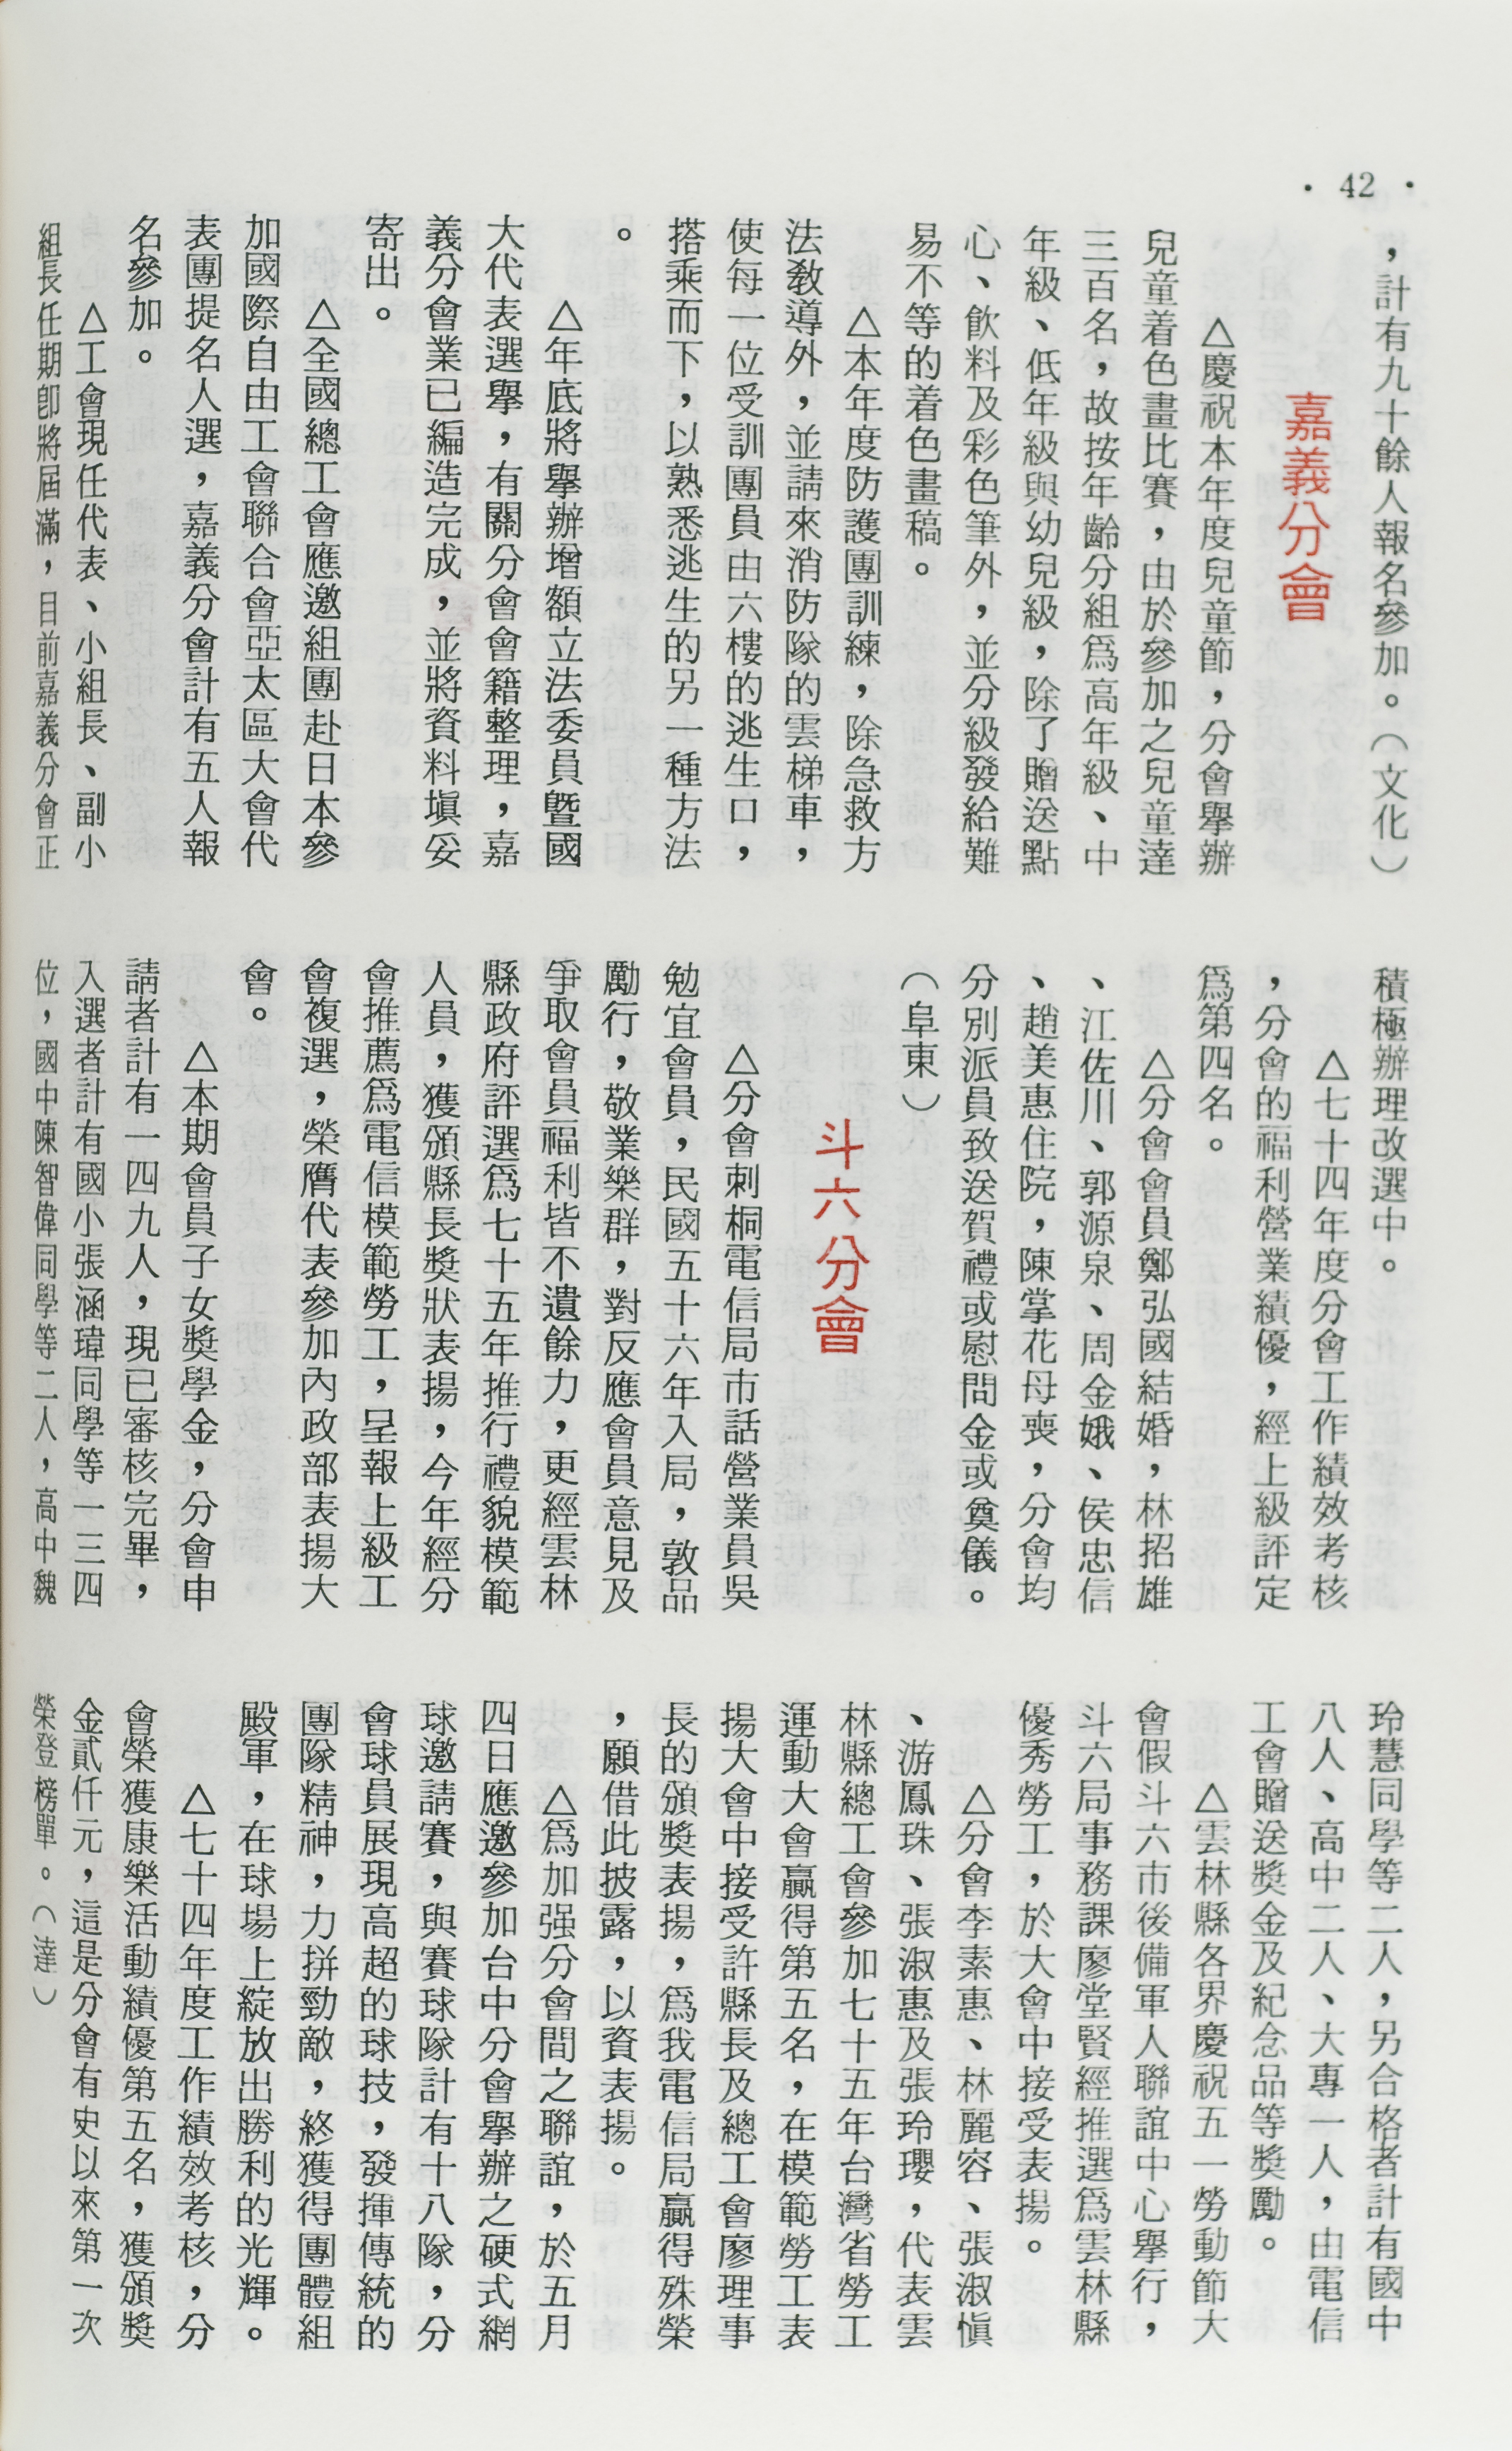 · 42 ·
，計有九十餘人報名參加。（文化）
嘉義分會
△慶祝本年度兒童節，分會舉辦
兒童着色畫比賽，由於參加之兒童達
三百名，故按年齡分組爲高年級、中
年級、低年級與幼兒級，除了贈送點
心、飲料及彩色筆外，並分級發給難
易不等的着色畫稿。
△本年度防護團訓練，除急救方
法教導外，並請來消防隊的雲梯車，
使每一位受訓團員由六樓的逃生口，
搭乘而下，以熟悉逃生的另一種方法
。
△年底將舉辦增額立法委員暨國
大代表選舉，有關分會會籍整理，嘉
義分會業已編造完成，並將資料塡妥
寄出。
△全國總工會應邀組團赴日本參
加國際自由工會聯合會亞太區大會代
表團提名人選，嘉義分會計有五人報
名參加。
△工會現任代表、小組長、副小
組長任期卽將屆滿，目前嘉義分會正
積極辦理改選中。
△七十四年度分會工作績效考核
，分會的福利營業績優，經上級評定
爲第四名。
△分會會員鄭弘國結婚，林招雄
、江佐川、郭源泉、周金娥、侯忠信
、趙美惠住院，陳掌花母喪，分會均
分別派員致送賀禮或慰問金或奠儀。
（阜東）
斗六分會
△分會刺桐電信局市話營業員吳
勉宜會員，民國五十六年入局，敦品
勵行，敬業樂群，對反應會員意見及
爭取會員福利皆不遺餘力，更經雲林
縣政府評選爲七十五年推行禮貌模範
人員，獲頒縣長獎狀表揚，今年經分
會推薦爲電信模範勞工，呈報上級工
會複選，榮膺代表參加內政部表揚大
會。
△本期會員子女獎學金，分會申
請者計有一四九人，現已審核完畢，
入選者計有國小張涵瑋同學等一三四
位，國中陳智偉同學等二人，高中魏
玲慧同學等二人，另合格者計有國中
八人、高中二人、大專一人，由電信
工會贈送獎金及紀念品等獎勵。
△雲林縣各界慶祝五一勞動節大
會假斗六市後備軍人聯誼中心舉行，
斗六局事務課廖堂賢經推選爲雲林縣
優秀勞工，於大會中接受表揚。
△分會李素惠、林麗容、張淑愼
、游鳳珠、張淑惠及張玲瓔，代表雲
林縣總工會參加七十五年台灣省勞工
運動大會贏得第五名，在模範勞工表
揚大會中接受許縣長及總工會廖理事
長的頒獎表揚，爲我電信局贏得殊榮
，願借此披露，以資表揚。
△爲加强分會間之聯誼，於五月
四日應邀參加台中分會舉辦之硬式網
球邀請賽，與賽球隊計有十八隊，分
會球員展現高超的球技，發揮傳統的
團隊精神，力拼勁敵，終獲得團體組
殿軍，在球場上綻放出勝利的光輝。
△七十四年度工作績效考核，分
會榮獲康樂活動績優第五名，獲頒獎
金貳仟元，這是分會有史以來第一次
榮登榜單。（達）